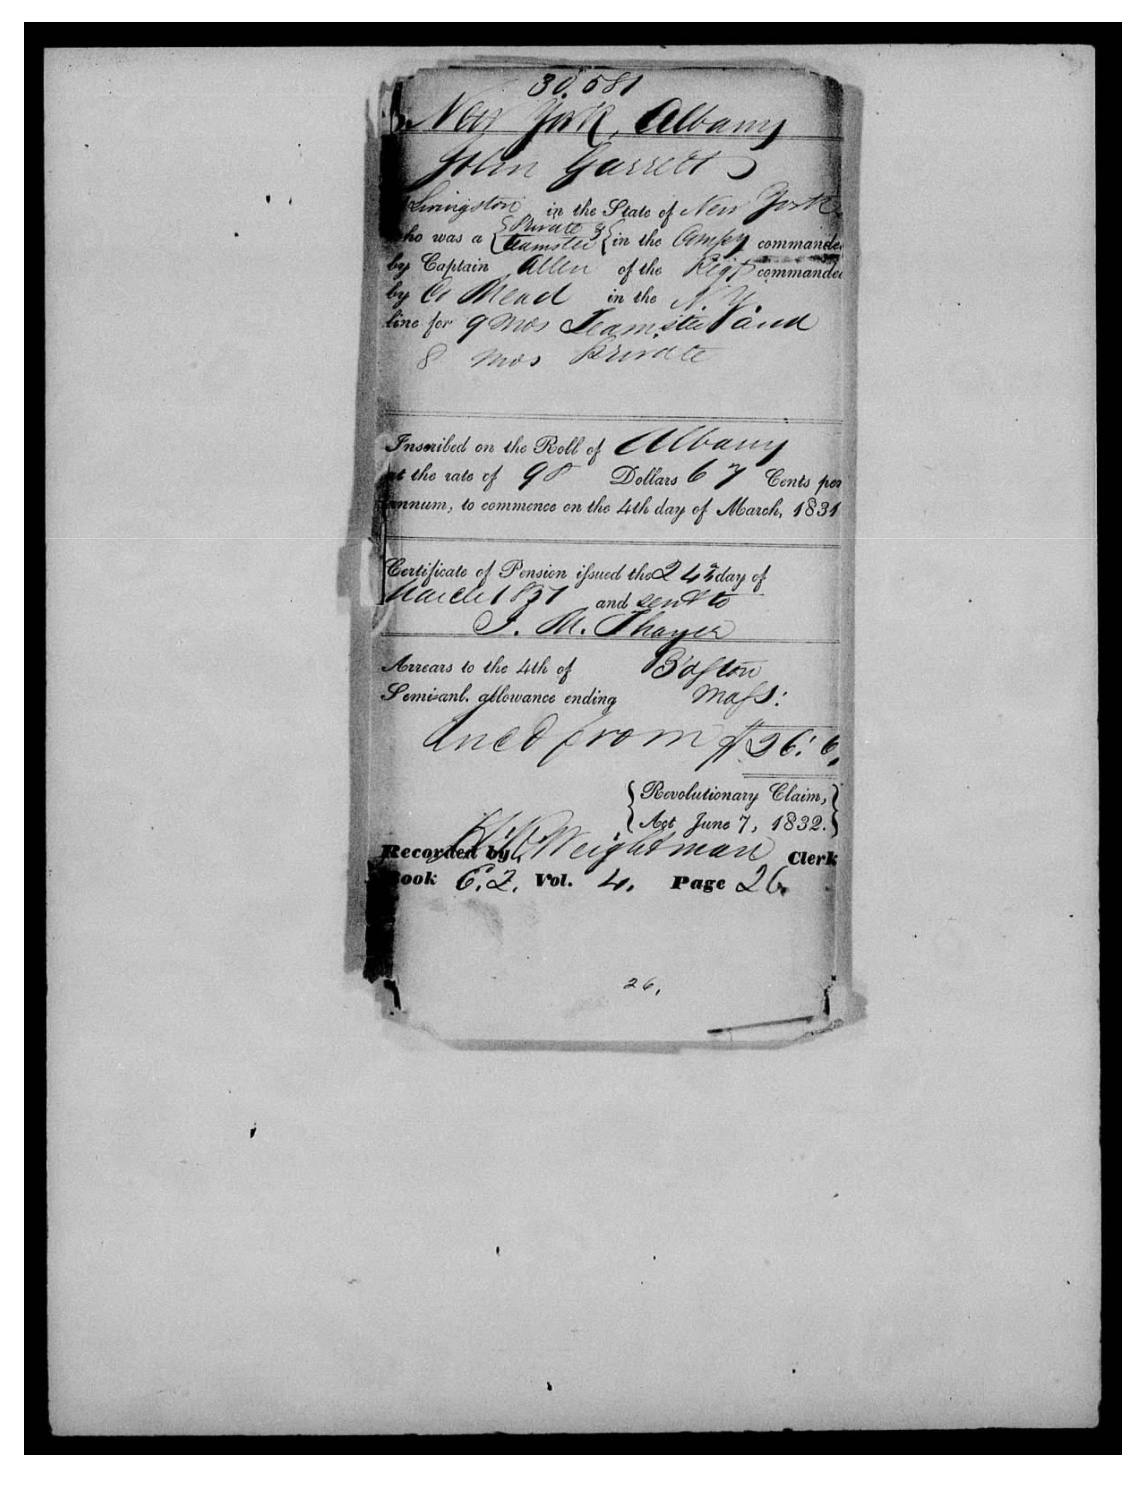 30.581
New York, Albany
John Garrett
Livingston in the State of New York
who was a { Private &
Teamster } in the Compy commanded
by Captain Allen of the Regt commanded
by Col Mead in the N.Y.
line for 9 mos Teamster and
8 mos Private
Inscribed on the Roll of Albany
at the rate of 98 Dollars 67 Cents per
annum, to commence on the 4th day of March, 1831
Certificate of Pension issued the 24th day of
March 1837 and sent to
J. M. Thayer
Arrears to the 4th of Boston
Semi-anl. allowance ending Mass:
Incd from $26.6
{ Revolutionary Claim,
Act June 7, 1832. }
Recorded by Weightman Clerk
Book E.2. Vol. 4. Page 26.
26.